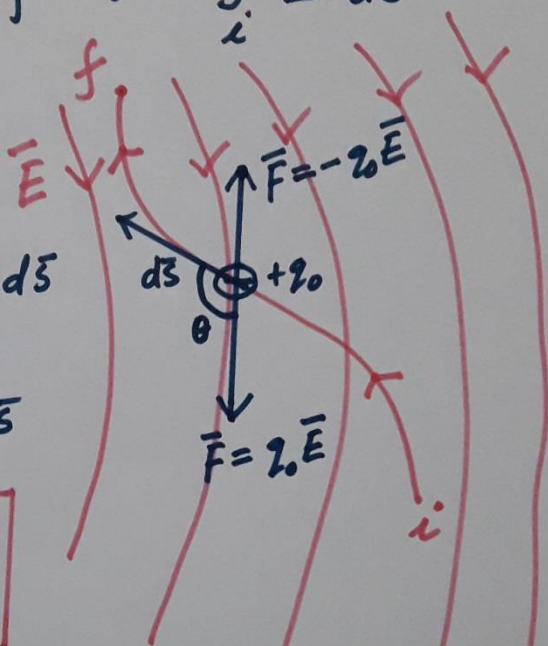 i
f
Ē
F̄ = -q₀Ē
ds̄
ds̄
+q₀
θ
s̄
F̄ = q₀Ē
i